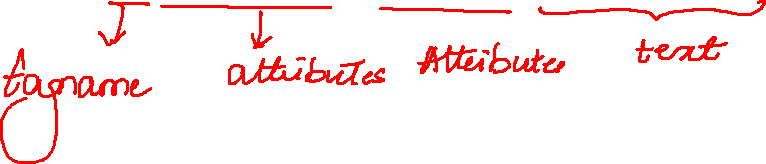 tagname attributes Attributes text